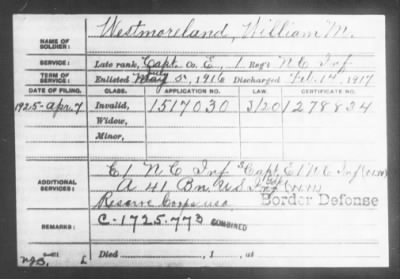 NAME OF SOLDIER: Westmoreland, William M.
SERVICE: Late rank, Capt. Co. E, 1 Reg't N C Inf
TERM OF SERVICE: Enlisted July 5, 1916 Discharged Feb. 14, 1917
DATE OF FILING. CLASS. APPLICATION NO. LAW. CERTIFICATE NO.
1925-Apr. 7 Invalid, 1517030 3/20 1278834
Widow,
Minor,
ADDITIONAL SERVICES: E 1 N C Inf Capt E 1 N C Inf (W.W.)
A 41 Bn. U.S. (W.W.)
Reserve Corps USA Border Defense
REMARKS: C-1725.773 COMBINED
Died , 1 , at